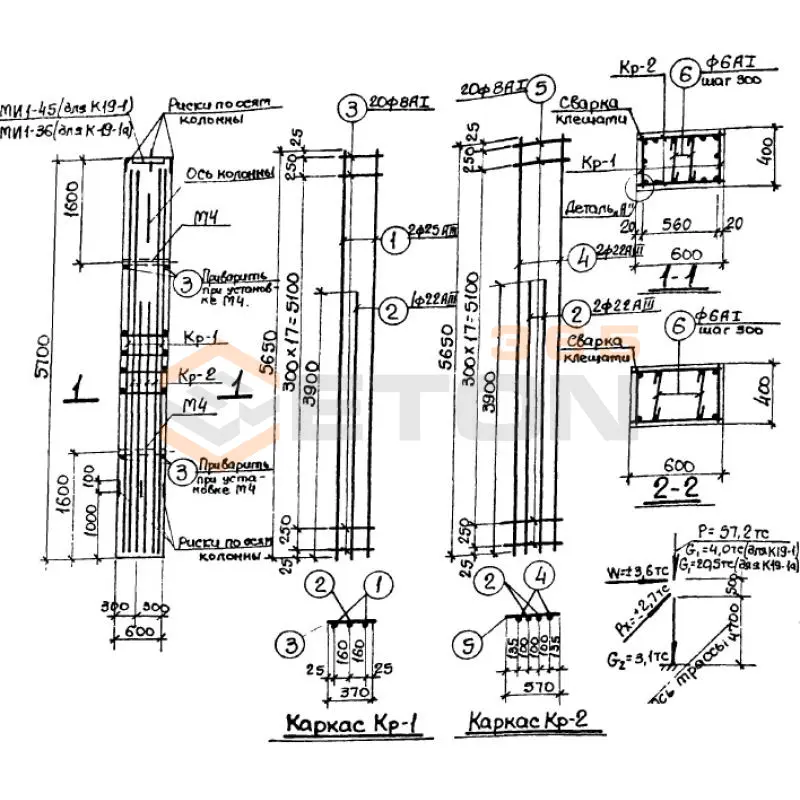 МИ1-45(для К19-1)
МИ1-36(для К-19-1а)
Риски по осям
колонны
Ось колонны
М4
3
Приварить
при установ-
ке М4.
Кр-1
Кр-2
1
1
М4
3
Приварить
при уста-
новке М4
Риски по осям
колонны
1600
5700
1600
100
1000
300
300
600
3
20ф8АI
25
250
1
2ф25АIII
2
1ф22АIII
5650
300х17=5100
3900
250
25
2
1
3
25
160
160
25
370
Каркас Кр-1
20ф8АI
5
25
250
4
2ф22АIII
2
2ф22АIII
5650
300х17=5100
3900
250
25
2
4
5
135
100
100
100
135
570
Каркас Кр-2
Кр-2
6
ф6АI
шаг 300
Сварка
клещами
Кр-1
Деталь„А"
400
20
560
20
600
1-1
6
ф6АI
шаг 300
Сварка
клещами
400
600
2-2
Р=57,2тс
G₁=4,0тс(для К19-1)
G₁=20,5тс(для К19-1а)
W=±3,6тс
Рх=±2,7тс
G₂=3,1тс
500
4700
Ось трассы
365
БЕТОН